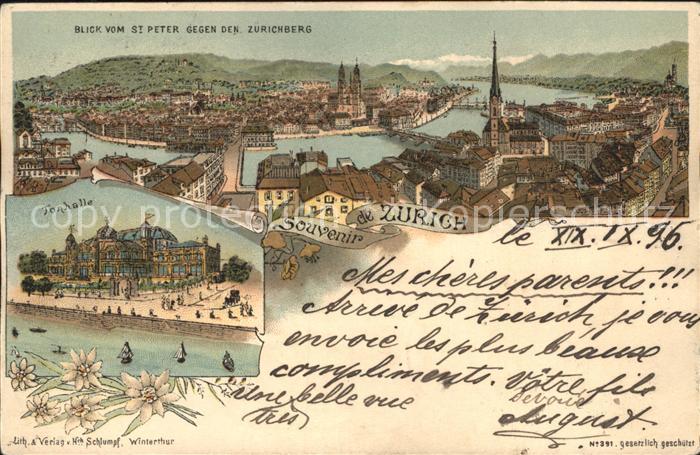 BLICK VOM ST PETER GEGEN DEN ZÜRICHBERG
Tonhalle
copyright-postcards.com
Souvenir de ZÜRICH
le XIX. IX. 96.
Mes chères parents!!!
Arrivé de Zürich je vous
envoie les plus beaux
compliments. Vôtre fils
dévoué
Une belle vue
très
August.
Lith. & Verlag v. Hch Schlumpf, Winterthur
No 391. gesetzlich geschützt